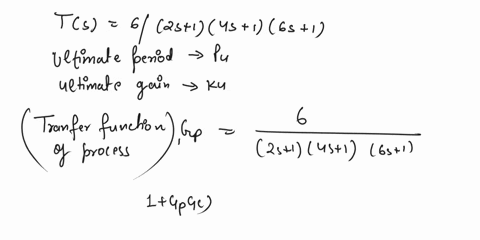 T(s) = 6/(2s+1)(4s+1)(6s+1)
Ultimate period → Pu
ultimate gain → Ku
(Tranfer function of process), Gp = 6 / (2s+1)(4s+1)(6s+1)
1+GpGc)